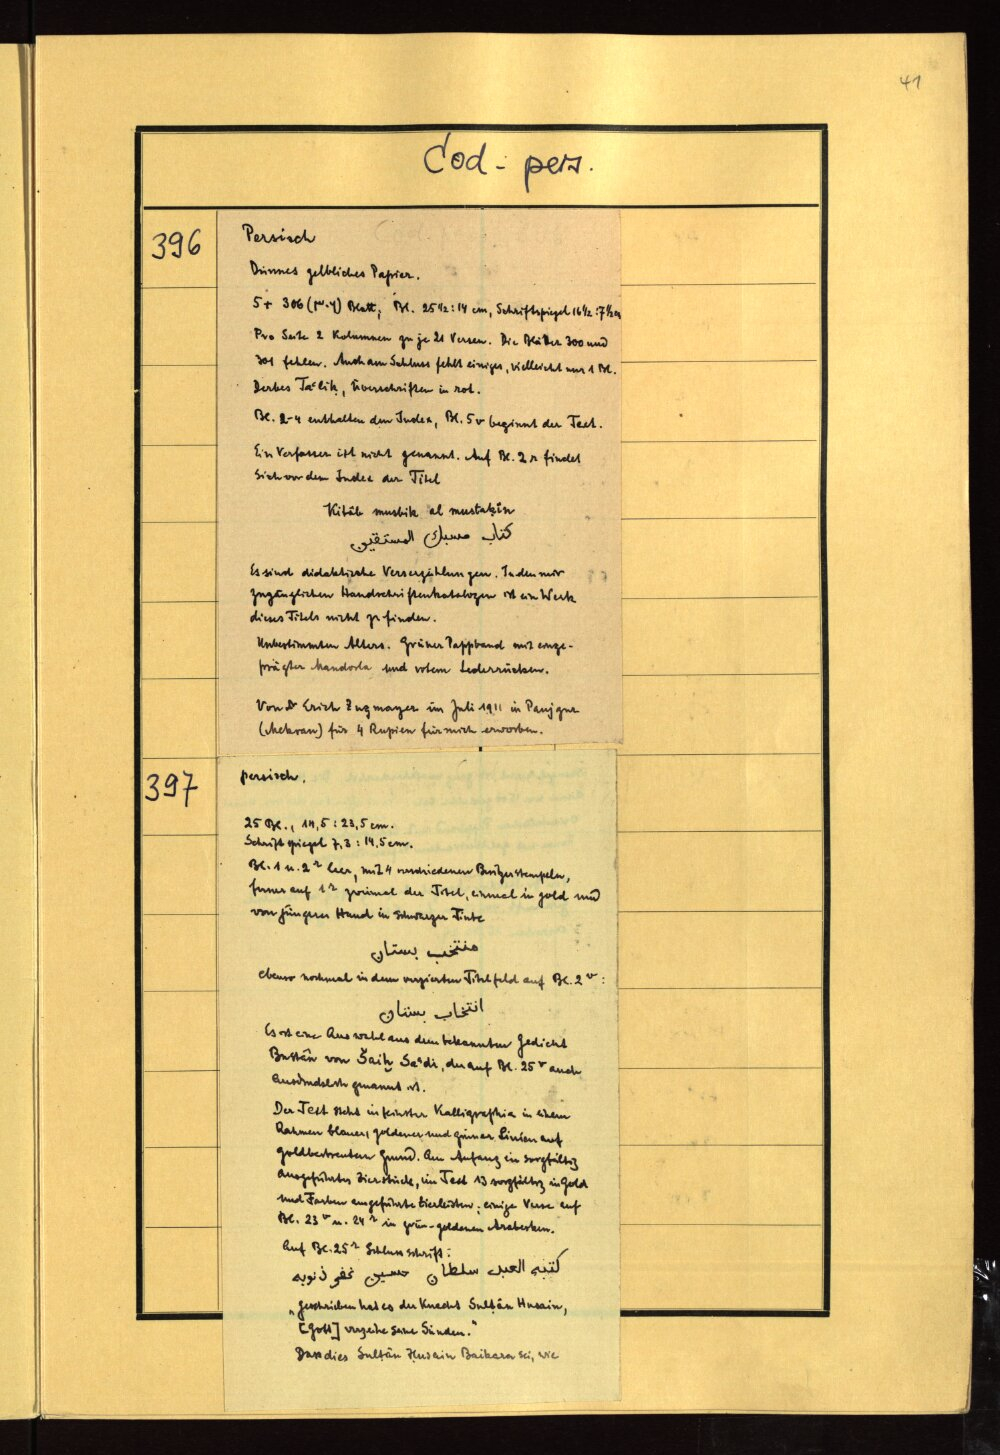 41
Cod. pers.
396
Persisch
Dünnes gelbliches Papier.
5 + 306 (٣٠٤) Blatt; Bl. 25 1/2 : 14 cm, Schriftspiegel 16 1/2 : 7 1/2 cm
Pro Seite 2 Kolumnen zu je 21 Versen. Die Blätter 300 und
301 fehlen. Auch am Schluss fehlt einiges, vielleicht nur 1 Bl.
Derbes Taʿlik, Überschriften in rot.
Bl. 2-4 enthalten den Index, Bl. 5v beginnt der Text.
Ein Verfasser ist nicht genannt. Auf Bl. 2r findet
sich vor dem Index der Titel
Kitāb musbik al mustaḳīn
كتاب مسبك المستقين
Es sind didaktische Verserzählungen. In den mir
zugänglichen Handschriftenkatalogen ist ein Werk
dieses Titels nicht zu finden.
Unbestimmten Alters. Grüner Pappband mit einge-
prägter Mandorla und rotem Lederrücken.
Von Dr Erich Zugmayer im Juli 1911 in Panjgur
(Mekran) für 4 Rupien für mich erworben.
397
persisch.
25 Bl., 14,5 : 23,5 cm.
Schriftspiegel 7,3 : 14,5 cm.
Bl. 1 u. 2r leer, mit 4 verschiedenen Besitzerstempeln,
ferner auf 1r zweimal der Titel, einmal in gold und
von jüngerer Hand in schwarzer Tinte
منتخب بستان
ebenso nochmal in dem verzierten Titelfeld auf Bl. 2v:
انتخاب بستان
Es ist eine Auswahl aus dem bekannten Gedicht
Bustān von Šaiḫ Saʿdi, der auf Bl. 25v auch
ausdrücklich genannt ist.
Der Text steht in feinster Kalligraphie in einem
Rahmen blauer, goldener und grüner Linien auf
goldbestreutem Grund. Am Anfang ein sorgfältig
ausgeführtes Zierstück, im Text 13 sorgfältig in Gold
und Farben ausgeführte Zierleisten; einige Verse auf
Bl. 23v u. 24r in grün-goldenen Arabesken.
Auf Bl. 25r Schlussschrift:
كتبه العبد سلطان حسين غفر ذنوبه
„geschrieben hat es der Knecht Sulṭān Husain,
[Gott] verzeihe seine Sünden."
Dass dies Sulṭān Ḥusain Baikara sei, wie